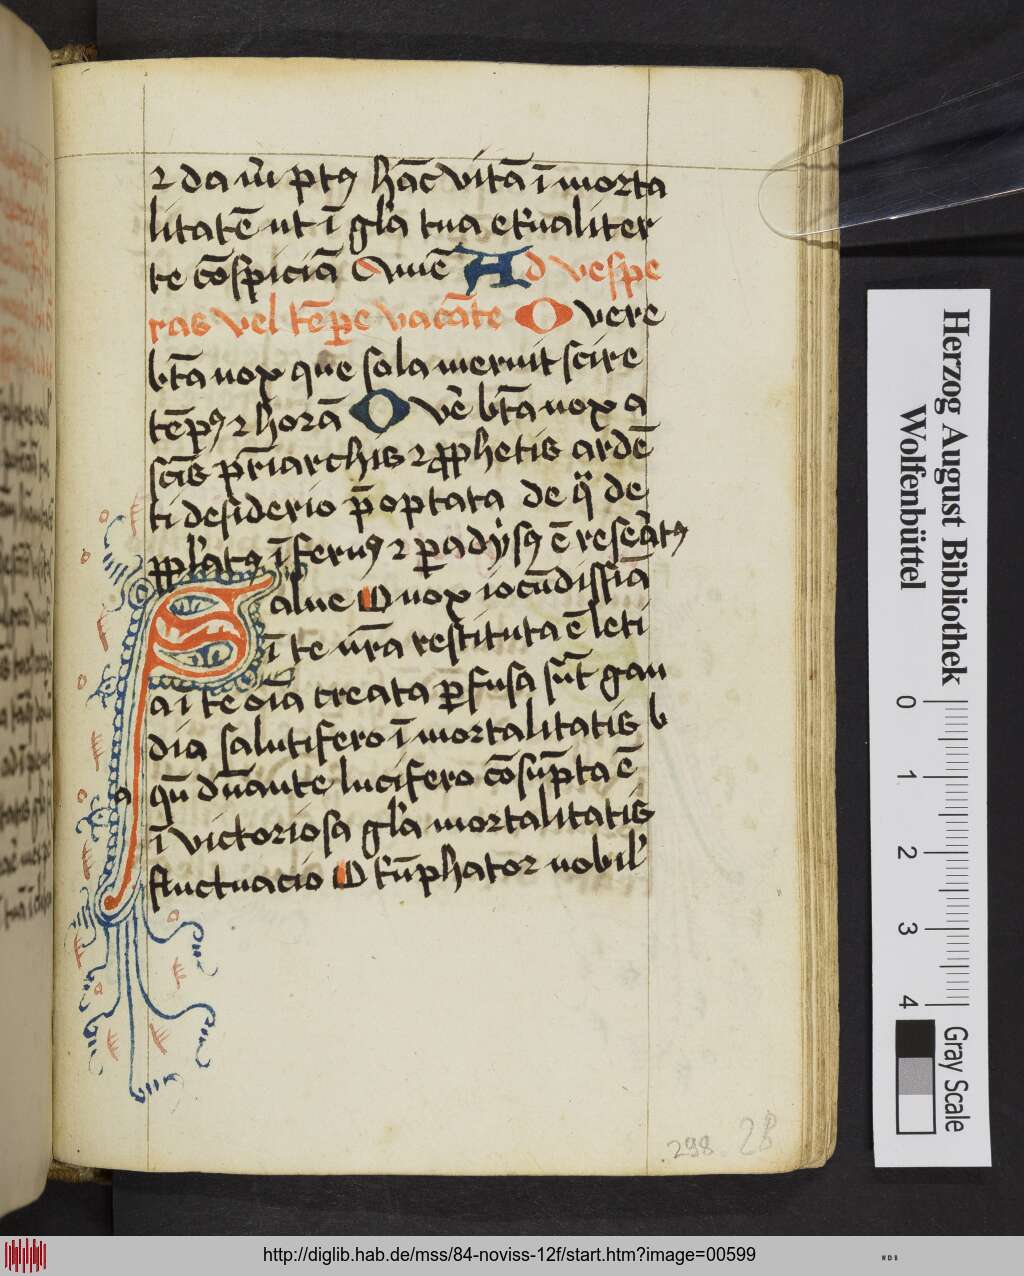 ⁊ da m̄ pt9 hāc vitā ī morta
litatē ut ī gl'a tua et'naliter
te cōspiciā Amē Ad vespe
ras vel tēpe vacāte O vere
bt̄a nox que sola meruit scire
tēp9 ⁊ horā O vē bt̄a nox a
sc̄is pr̄iarchis ⁊ ꝓphetis ardē
ti desiderio p̄optata de q̄ de
ꝓp'lat9 īfern9 ⁊ ꝑadys9 ē reserāt9
Salue O nox iocūdissīa
ī te nr̄a restituta ē leti
a ī te oīa creata ꝑfusa sūt gau
dia salutifero īmortalitatis b
qn̄ dn̄ante lucifero cōsūpta ē
ī victoriosa gl'a mortalitatis
fluctuacio O t'ūphator nobil'
298 28
Herzog August Bibliothek
Wolfenbüttel
0 1 2 3 4
Gray Scale
http://diglib.hab.de/mss/84-noviss-12f/start.htm?image=00599